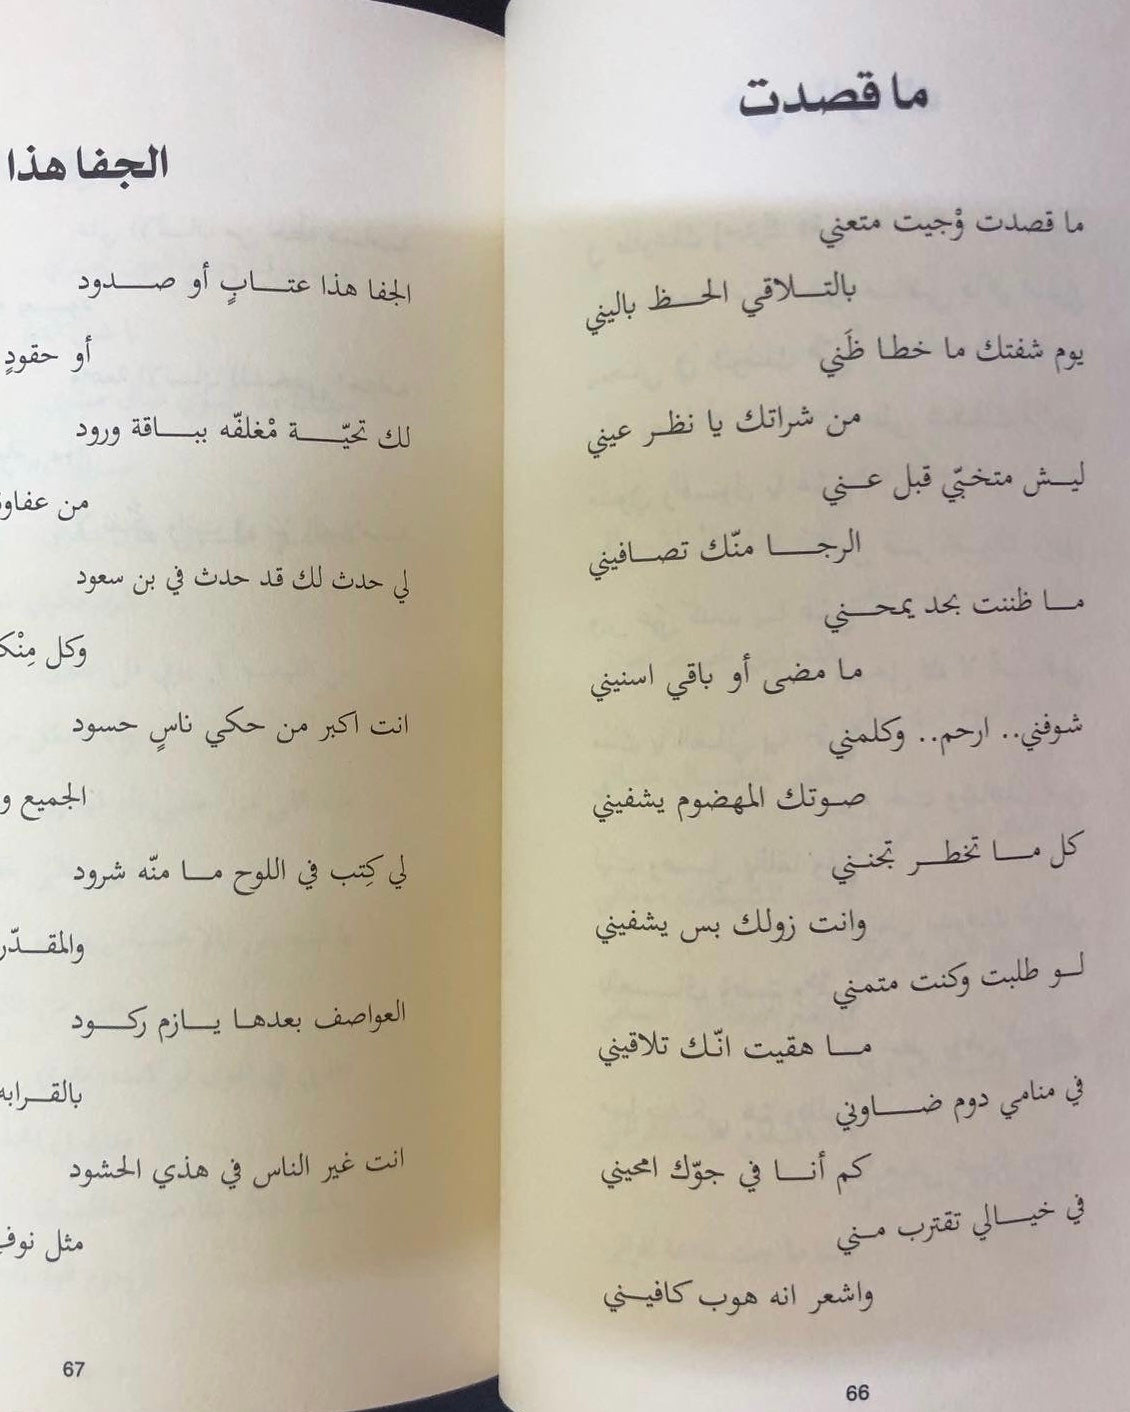 ما قصدت
ما قصدت وْجيت متعني
بالتـــلاقي الحـــظ باليني
يوم شفتك ما خطا ظَني
من شراتك يا نظـر عيني
ليـش متخبّي قبل عـني
الرجـــا منّك تصـافيني
مـا ظننت بحد يمحـني
ما مضى أو باقي اسنيني
شوفني.. ارحم.. وكلمني
صـوتك المهضوم يشفيني
كل مـا تخطـر تجننـني
وانت زولك بس يشفيني
لـو طلبت وكنت متمني
مـا هقيت انّك تلاقيني
في منامي دوم ضـــاوني
كم أنـا في جوّك امحيني
في خيـالي تقترب مـني
واشعر انه هوب كافيـني
66
الجفا هذا
الجفا هذا عتـــابٍ أو صـــدود
أو حقودٍ
لك تحيّـــة مْغلفّه ببـــاقة ورود
من
لي حدث لك قد حدث في بن سعود
وكل
انت اكبر من حكي ناسٍ حسود
الجميع
لي كِتب في اللوح مـا منّه شرود
والمقـدّر
العواصف بعدهـا يـازم ركـود
بالقـرابه
انت غير الناس في هذي الحشود
مثل
67